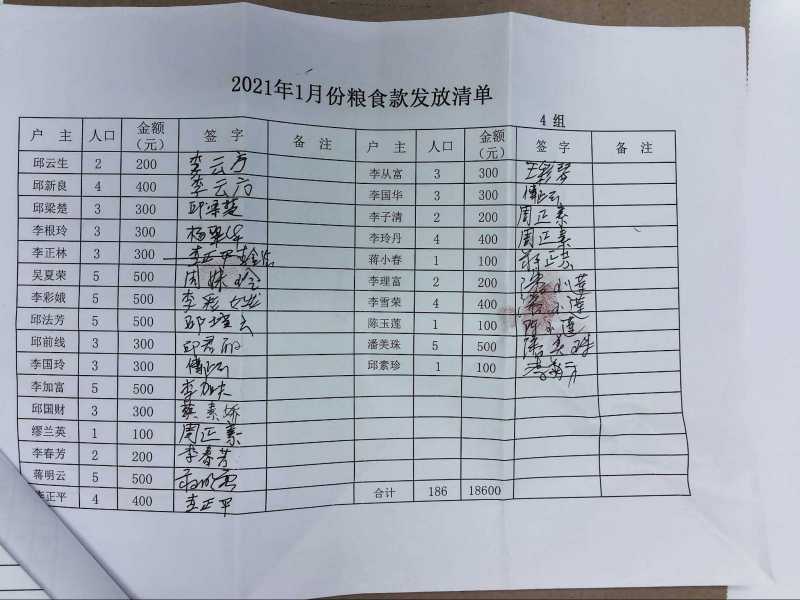 2021年1月份粮食款发放清单
4 组
户 主 人口 金额（元） 签 字 备 注 户 主 人口 金额（元） 签 字 备 注
邱云生 2 200 李云方 李从富 3 300
邱新良 4 400 李云方 李国华 3 300
邱梁楚 3 300 邱梁楚 李子清 2 200 周正素
李根玲 3 300 李玲丹 4 400 周正素
李正林 3 300 李正平 蒋小春 1 100
吴夏荣 5 500 周妹玲 李理富 2 200
李彩娥 5 500 李彩娥 李雪荣 4 400
邱法芳 5 500 陈玉莲 1 100
邱前线 3 300 潘美珠 5 500
李国玲 3 300 邱素珍 1 100
李加富 5 500
邱国财 3 300
缪兰英 1 100 周正素
李春芳 2 200 李春芳
蒋明云 5 500
李正平 4 400 李正平 合计 186 18600